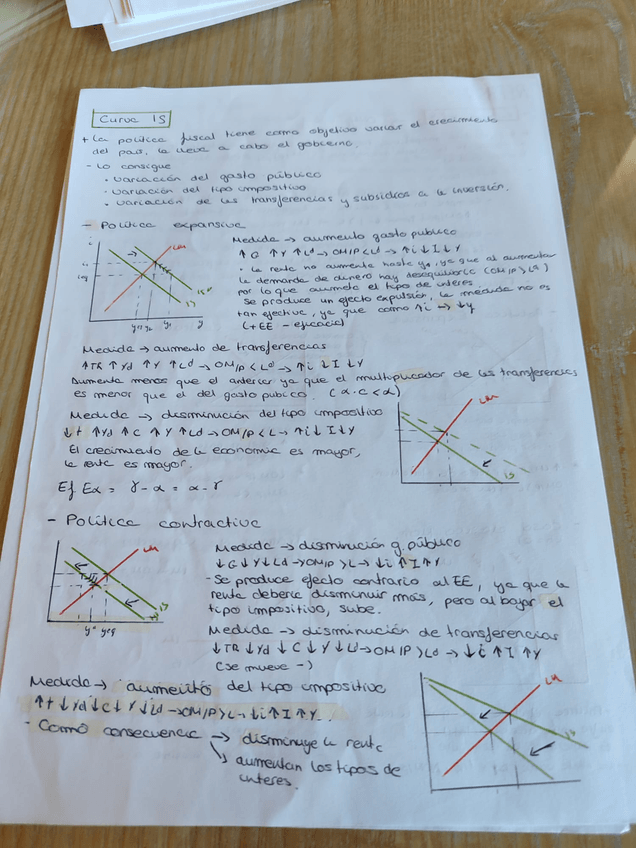 Curva IS
+ La política fiscal tiene como objetivo variar el crecimiento
del país, la lleva a cabo el gobierno.
- Lo consigue
• variación del gasto público
• variación del tipo impositivo
• variación de las transferencias y subsidios a la inversión.
- Política expansiva
Medida → aumento gasto publico
↑G ↑Y ↑Ld → OM/P < Ld → ↑i ↓I ↓Y
• La renta no aumenta hasta y1, ya que al aumentar
la demanda de dinero hay desequilibrio (OM/P > Ld)
por lo que aumenta el tipo de interes.
Se produce un efecto expulsión, la medida no es
tan efectiva, ya que como ↑i → ↓y
(+EE - eficacia)
i
LM
IS
y
Medida → aumento de transferencias
↑TR ↑Yd ↑Y ↑Ld → OM/P < Ld → ↑i ↓I ↓Y
Aumenta menos que el anterior ya que el multiplicador de las transferencias
es menor que el del gasto publico. (α·c < α)
Medida → disminución del tipo impositivo
↓t ↑Yd ↑C ↑Y ↑Ld → OM/P < L → ↑i ↓I ↓Y
El crecimiento de la economia es mayor,
la renta es mayor.
LM
IS
Ef Ex = γ - α = α - γ
- Política contractiva
Medida → disminución g. público
↓G ↓Y ↓Ld → OM/P > L → ↓i ↑I ↑Y
- Se produce efecto contrario al EE, ya que la
renta deberia disminuir más, pero al bajar el
tipo impositivo, sube.
LM
IS
y* yeq
Medida → disminución de transferencias
↓TR ↓Yd ↓C ↓Y ↓Ld → OM/P > Ld → ↓i ↑I ↑Y
(se mueve -)
Medida → aumento del tipo impositivo
↑t ↓Yd ↓C ↓Y ↓Ld → OM/P > L → ↓i ↑I ↑Y
- Como consecuencia → disminuye la renta
↳ aumentan los tipos de
interes.
LM
IS